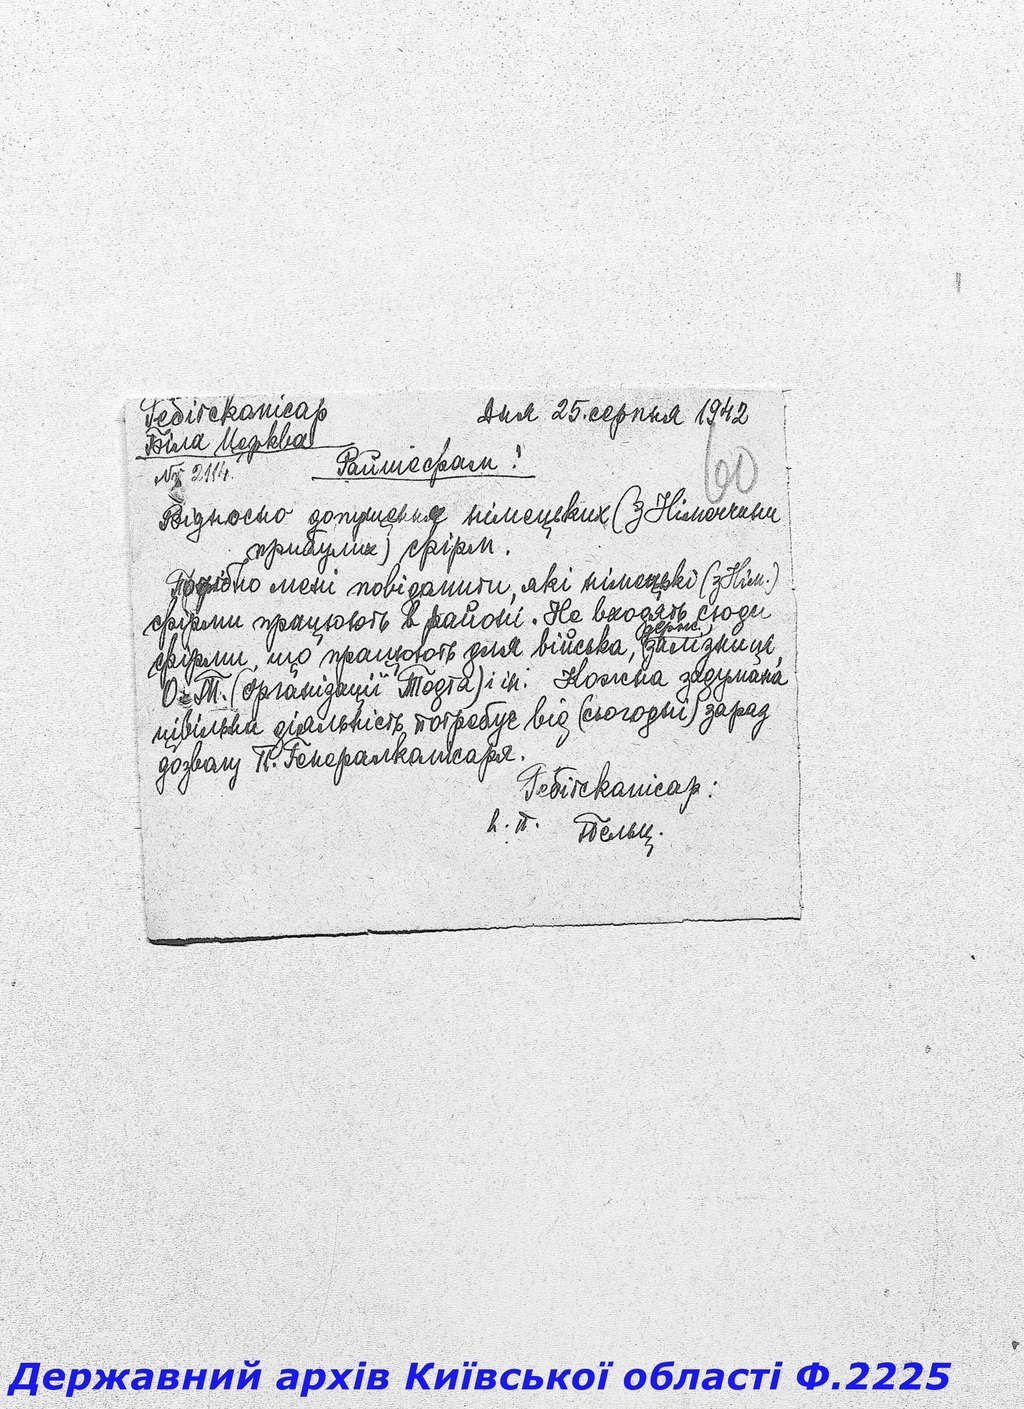 Гебітскомісар
Біла Церква
Дня 25. серпня 1942
№ 2114.
Райшефам!
60
Відносно допущення німецьких (з Німеччини
прибулих) фірм.
Потрібно мені повідомити, які німецькі (з Нім.)
фірми працюють в районі. Не входять сюди
фірми, що працюють для війська, залізниця,
О. Т. (Організації Тодта) і ін. Кожна задумана
цівільна діяльність потребує від (сьогодні) зараз
дозвалу П. Генералкомісаря.
Гебітскомісар:
в. п.
Державний архів Київської області Ф.2225